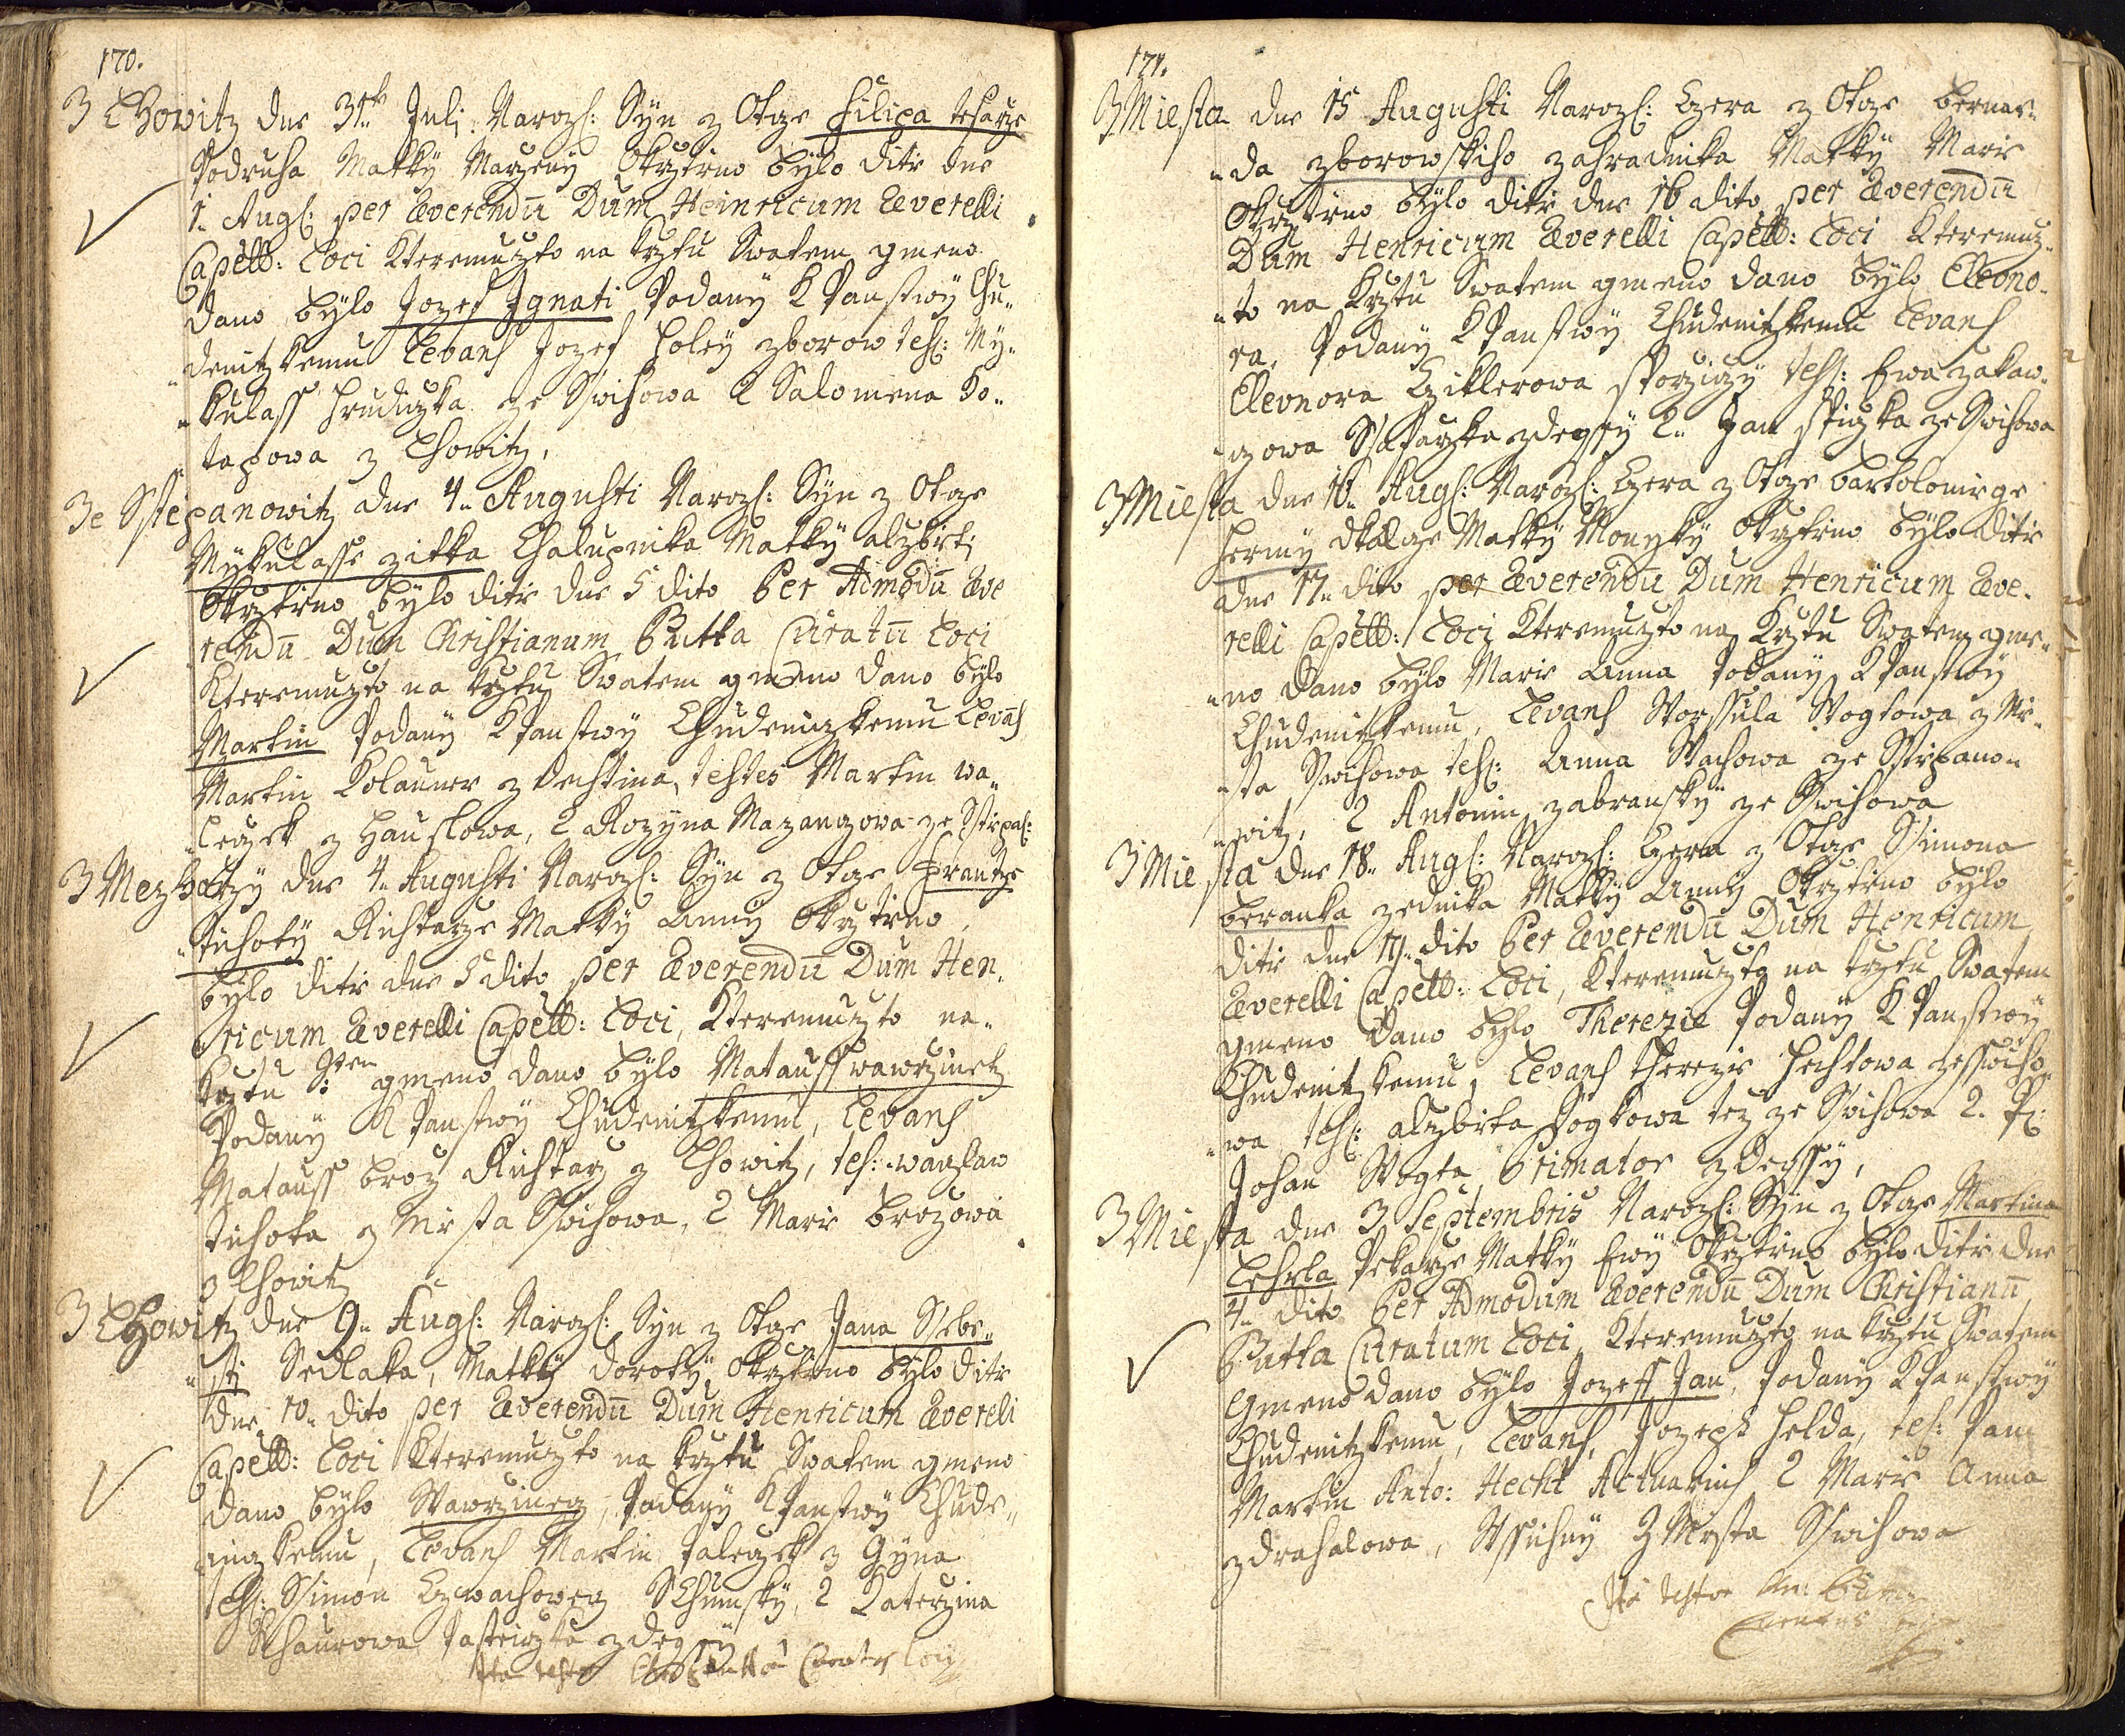 170.
Z Lhowitz dne 31. Julj: Narozs: Syn z Otcze Filipa tesarze
Podruha Matky Marzeny Okrztieno bylo ditie dne
1. Augs: per Reverendum Dum Heinricum Reverelli
Capell: Loci kteremuzto na krztu Swatem gmeno
dano bylo Jozef Ignati Podany k Panstwy Chu-
denitzkemu Levans Jozef Holey zborow tes: My-
kulass Hruduzka ze Swihowa 2 Salomena Ko-
tazowa z Lhowitz.
Ze Sstiepanowitz dne 4. Augusti Narozs: Syn z Otcze
Mykulasse zitka Chalupnika Matky alzbietj
Okrztieno bylo ditie dne 5 dito Per Admodu Reve
rendu Dum Christianum Putta Curatu Loci
kteremuzto na krztu Swatem gmeno dano bylo
Martin Podany k Panstwy Chudeniczkemu Levans
Martin Kolauner z dechtina, testes Martin wa-
leczek z Hauslowa, 2 Rozyna Mazanczowa ze Sstiepa:
Z Mezholzy dne 4. Augusti Narozs: Syn z Otcze Frantze
Tichoty Richtarze Matky Anny Okrztieno
bylo ditie dne 5 dito per Reverendu Dum Hen-
ricum Reverelli Capell: Loci, kteremuzto na-
krztu Sten: gmeno dano bylo Matauss wawrzinetz
Podany k Panstwy Chudenitzkemu, Levans
Matauss broz Richtarz z Lhowitz, tes: wanzlaw
tichota z Miesta Swihowa, 2 Marie brozowa
z Lhowitz
Z Lhowitz dne 9. Augs: Narozs: Syn z Otcze Jana Ssebe-
sti Sedlaka, Matky doroty, Okrztieno bylo ditie
dne 10. dito per Reverendu Dum Henricum Revereli
Capell: Loci kteremuzto na krztu Swatem gmeno
dano bylo Wawrzinecz, Podany k Panstwy Chude-
niczkemu, Levans Martin Paleczek z Gyna
tes: Simon Czwachowecz Chumsky, 2 Katerzina
Schaurowa Pastuszka zdegssy
171.
Z Miesta dne 15 Augusti Narozs: Czera z Otcze bernar-
da zborowskiho zahradnika Matky Marie
Okrztieno bylo ditie dne 16 dito per Reverendu
Dum Henricum Reverelli Capell: Loci kteremuz-
to na krztu Swatem gmeno dano bylo Eleono-
ra, Podany k Panstwy Chudenitzkemu Levans
Eleonora Cziklerowa sporziczy tes: Ewa zakaw-
czowa Ssafarzka zdegssy 2. Jan Spiczka ze Swihowa
Z Miesta dne 16. Augs: Narozs: Czera z Otcze bartolomiege
Hermy dkalcze Matky Monyky Okrztieno bylo ditie
dne 17. dito per Reverendu Dum Henricum Reve-
relli Capell: Loci kteremuzto na krztu Swatem gme-
no dano bylo Marie Anna Podany k Panstwy
Chudenitzkemu, Levans Worssula Wogtowa z Mie-
sta Swihowa tes: Anna Wachowa ze Sstiepano-
witz, 2 Antonin zabransky ze Swihowa
Z Miesta dne 18. Augs: Narozs: Czera z Otcze Simona
beranka zednika Matky Anny Okrztieno bylo
ditie dne 19. dito Per Reverendu Dum Henricum
Reverelli Capell: Loci, kteremuzto na krztu Swatem
gmeno dano bylo Therezie Podany k Panstwy
Chudenitzkemu, Levans therezie Hechtowa zeswiho-
wa tes: alzbieta Wogtowa tez ze Swihowa 2. P:
Johan Wogta Primator zdegssy,
Z Miesta dne 3 Septembris Narozs: Syn z Otcze Martina
Lehrla Pekarze Matky Ewy Okrztieno bylo ditie dne
4. dito Per Admodum Reverendu Dum Christianu
Putta Curatum Loci, kteremuzto na krztu Swatem
Gmeno dano bylo Jozeff Jan, Podany k Panstwy
Chudenitzkemu, Levans, Jozeph Helda, tes: Pan
Martin Anto: Hecht Actuarius 2 Marie Anna
zdrahalowa, Wssichny Z Miesta Swihowa